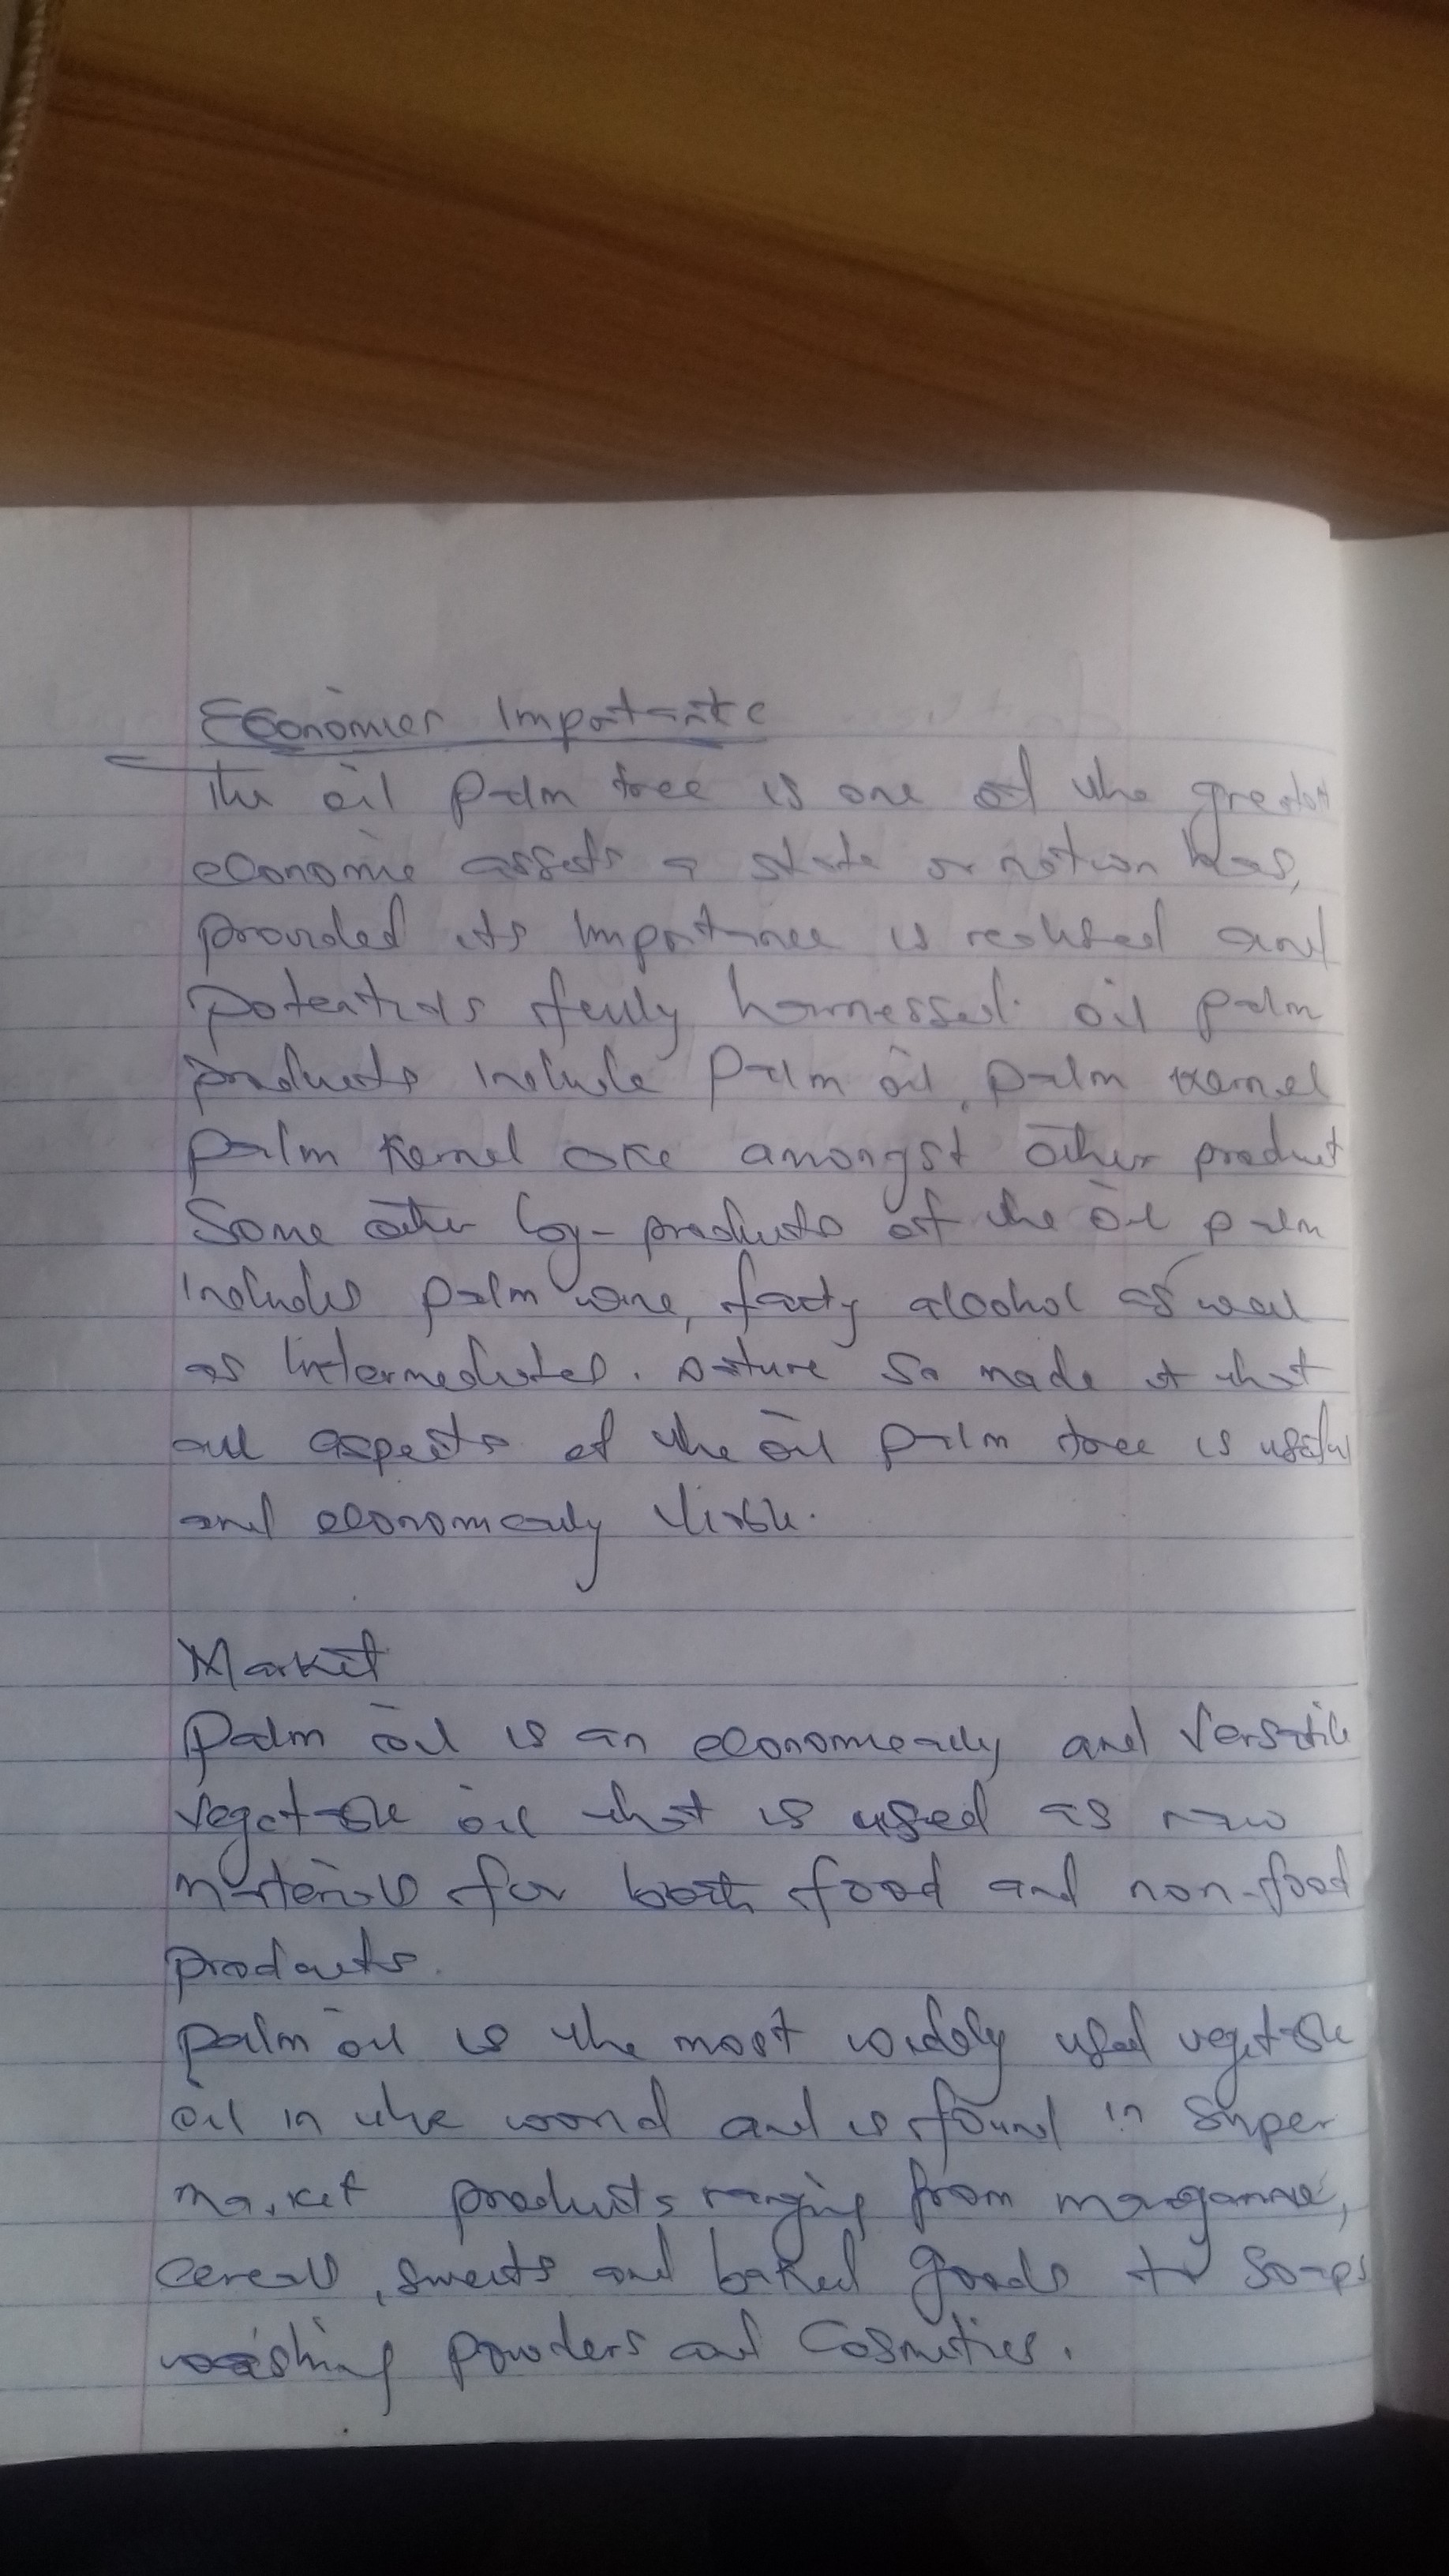 Economics Importance
The oil palm tree is one of the greatest
economic assets a state or nation has,
provided its importance is realised and
potentials fully harnessed. oil palm
products include palm oil, palm kernel
palm kernel cake amongst other product
Some other by-products of the oil palm
includes palm wine, fatty alcohol as well
as intermediates. nature so made it that
all aspects of the oil palm tree is useful
and economically viable.
Market
Palm oil is an economically and versatile
vegetable oil that is used as raw
materials for both food and non-food
products.
palm oil is the most widely used vegetable
oil in the world and is found in super
market products ranging from margarine,
cereals, sweets and baked goods to soaps
washing powders and Cosmetics.